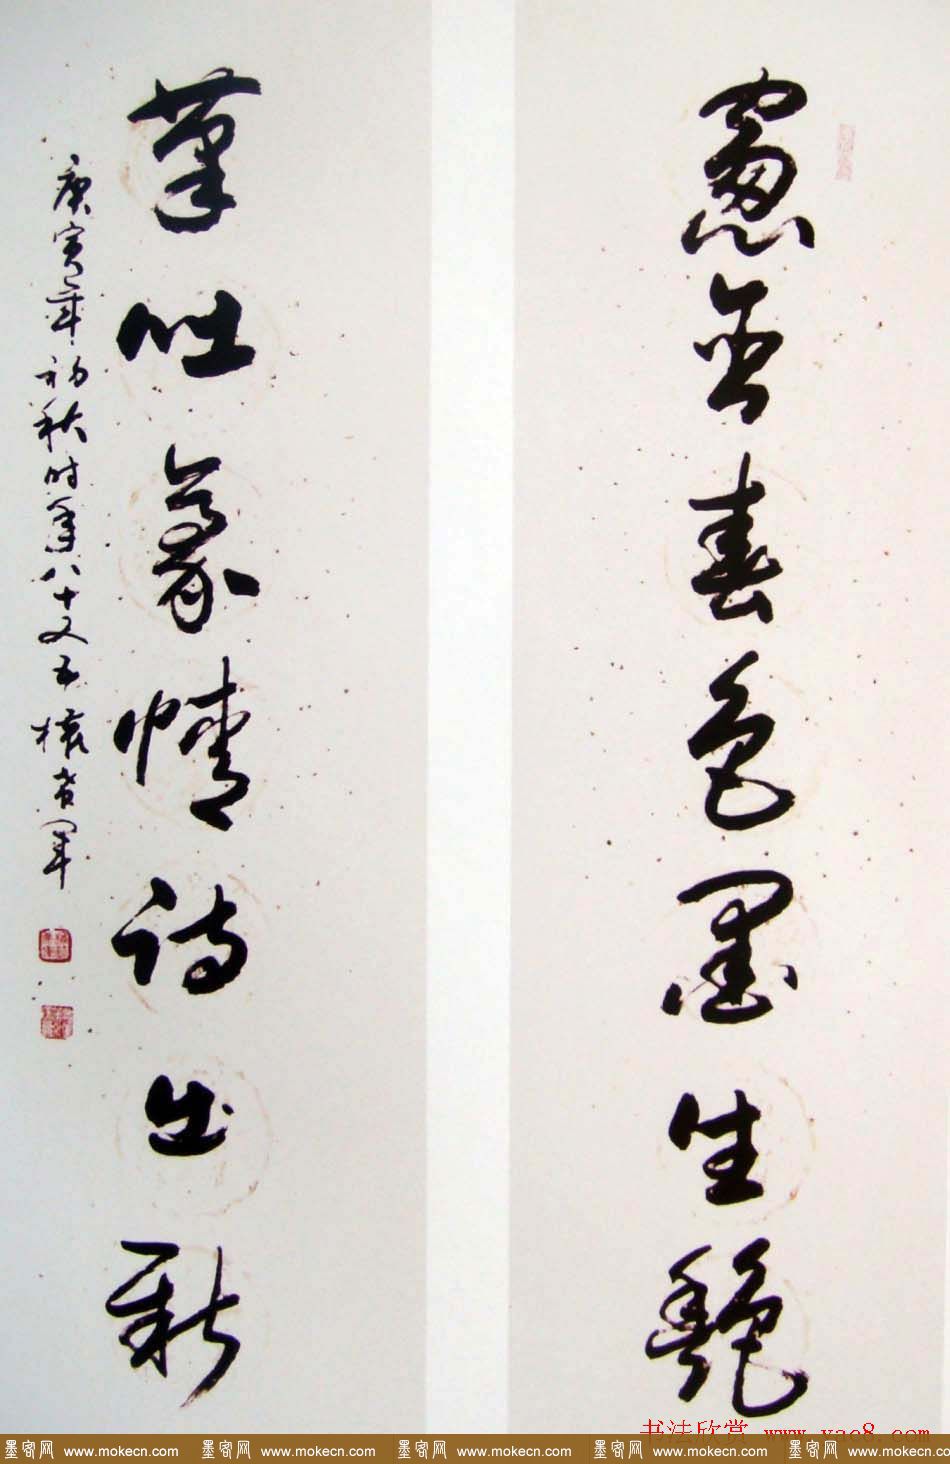 窗含春色墨生艳
笔吐豪情诗出新
庚寅年初秋时年八十又五
书法欣赏 www.yac8.com
墨客网 www.mokecn.com 墨客网 www.mokecn.com 墨客网 www.mokecn.com 墨客网 www.mokecn.com 墨客网 www.mokecn.com